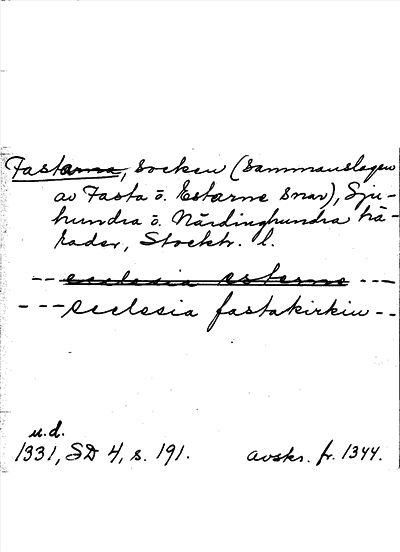 Fastarna, socken (sammanslagen
av Fasta o. Estarne snar), Sju-
hundra o. Närdinghundra hä-
rader, Stockh. l.
--- ecclesia esterne ---
--- ecclesia fastakirkiu --
u.d.
1331, SD 4, s. 191. avskr. fr. 1344.